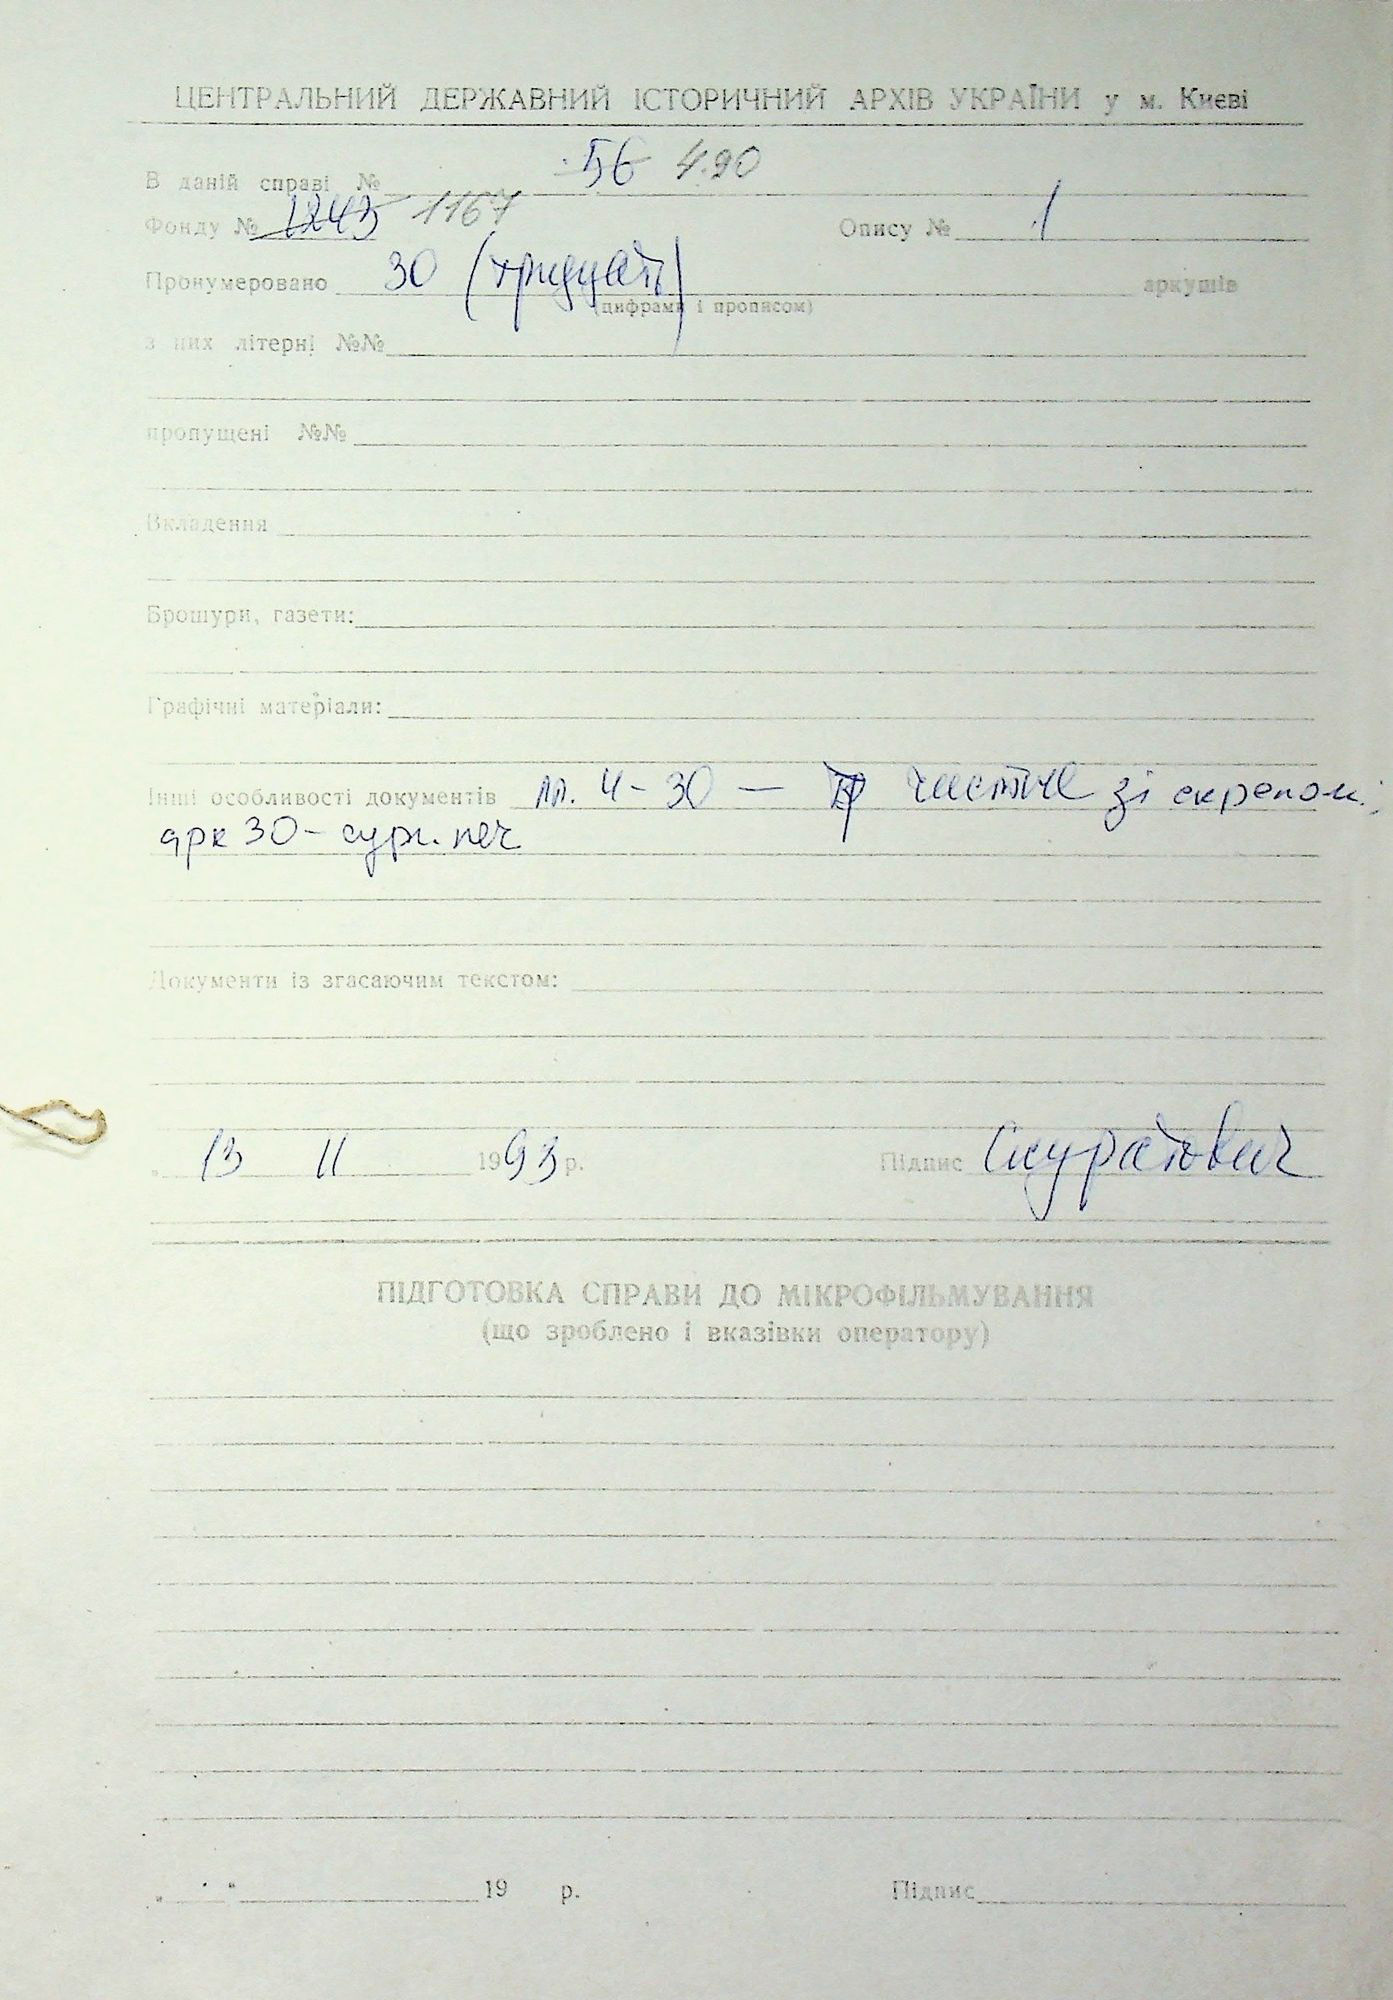 ЦЕНТРАЛЬНИЙ ДЕРЖАВНИЙ ІСТОРИЧНИЙ АРХІВ УКРАЇНИ у м. Києві
В даній справі № 56 490
Фонду № 1243 1167 Опису № 1
Пронумеровано 30 (тридцать) аркушів
(цифрами і прописом)
з них літерні №№
пропущені №№
Вкладення
Брошури, газети:
Графічні матеріали:
Інші особливості документів лл. 4-30 — чистие зі скрепой;
арк 30 - сург. печ
Документи із згасаючим текстом:
„ 13 11 1993 р. Підпис Скуратович
ПІДГОТОВКА СПРАВИ ДО МІКРОФІЛЬМУВАННЯ
(що зроблено і вказівки оператору)
„ " 19 р. Підпис